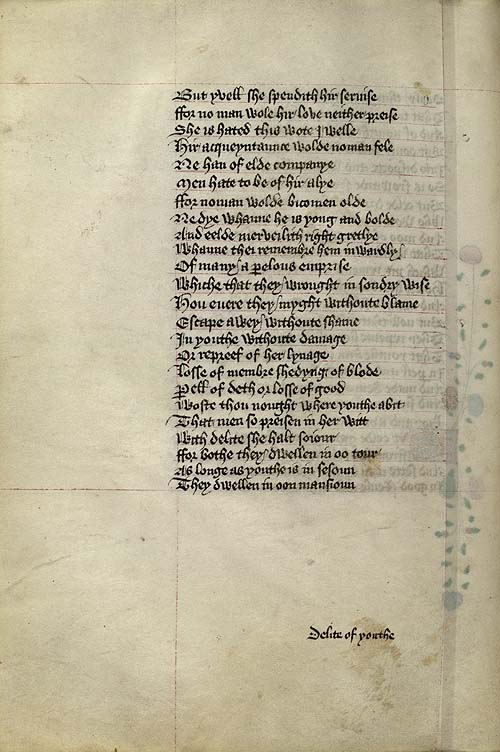 But yvell she spendith hir servise
ffor no man wole hir love neither preise
She is hated this wote I welle
Hir acqueyntaunce wolde no man fele
Ne han of elde companye
Men hate to be of hir alye
ffor noman wolde bicomen olde
Ne dye whanne he is yong and bolde
And eelde merveilith right gretlye
Whanne thei remembre hem inwardly
Of many a pelous emprise
Whiche that they wrought in sondry wise
Hou evere they myght withoute blame
Escape awey withoute shame
In youthe withoute damage
Or repreef of her lynage
Losse of membre shedyng of blode
Pell of deth or losse of good
Woste thou nought where youthe abit
That men so preisen in her witt
With delite she halt soiour
ffor bothe they dwellen in oo tour
As longe as youthe is in sesoun
They dwellen in oon mansioun
Delite of youthe